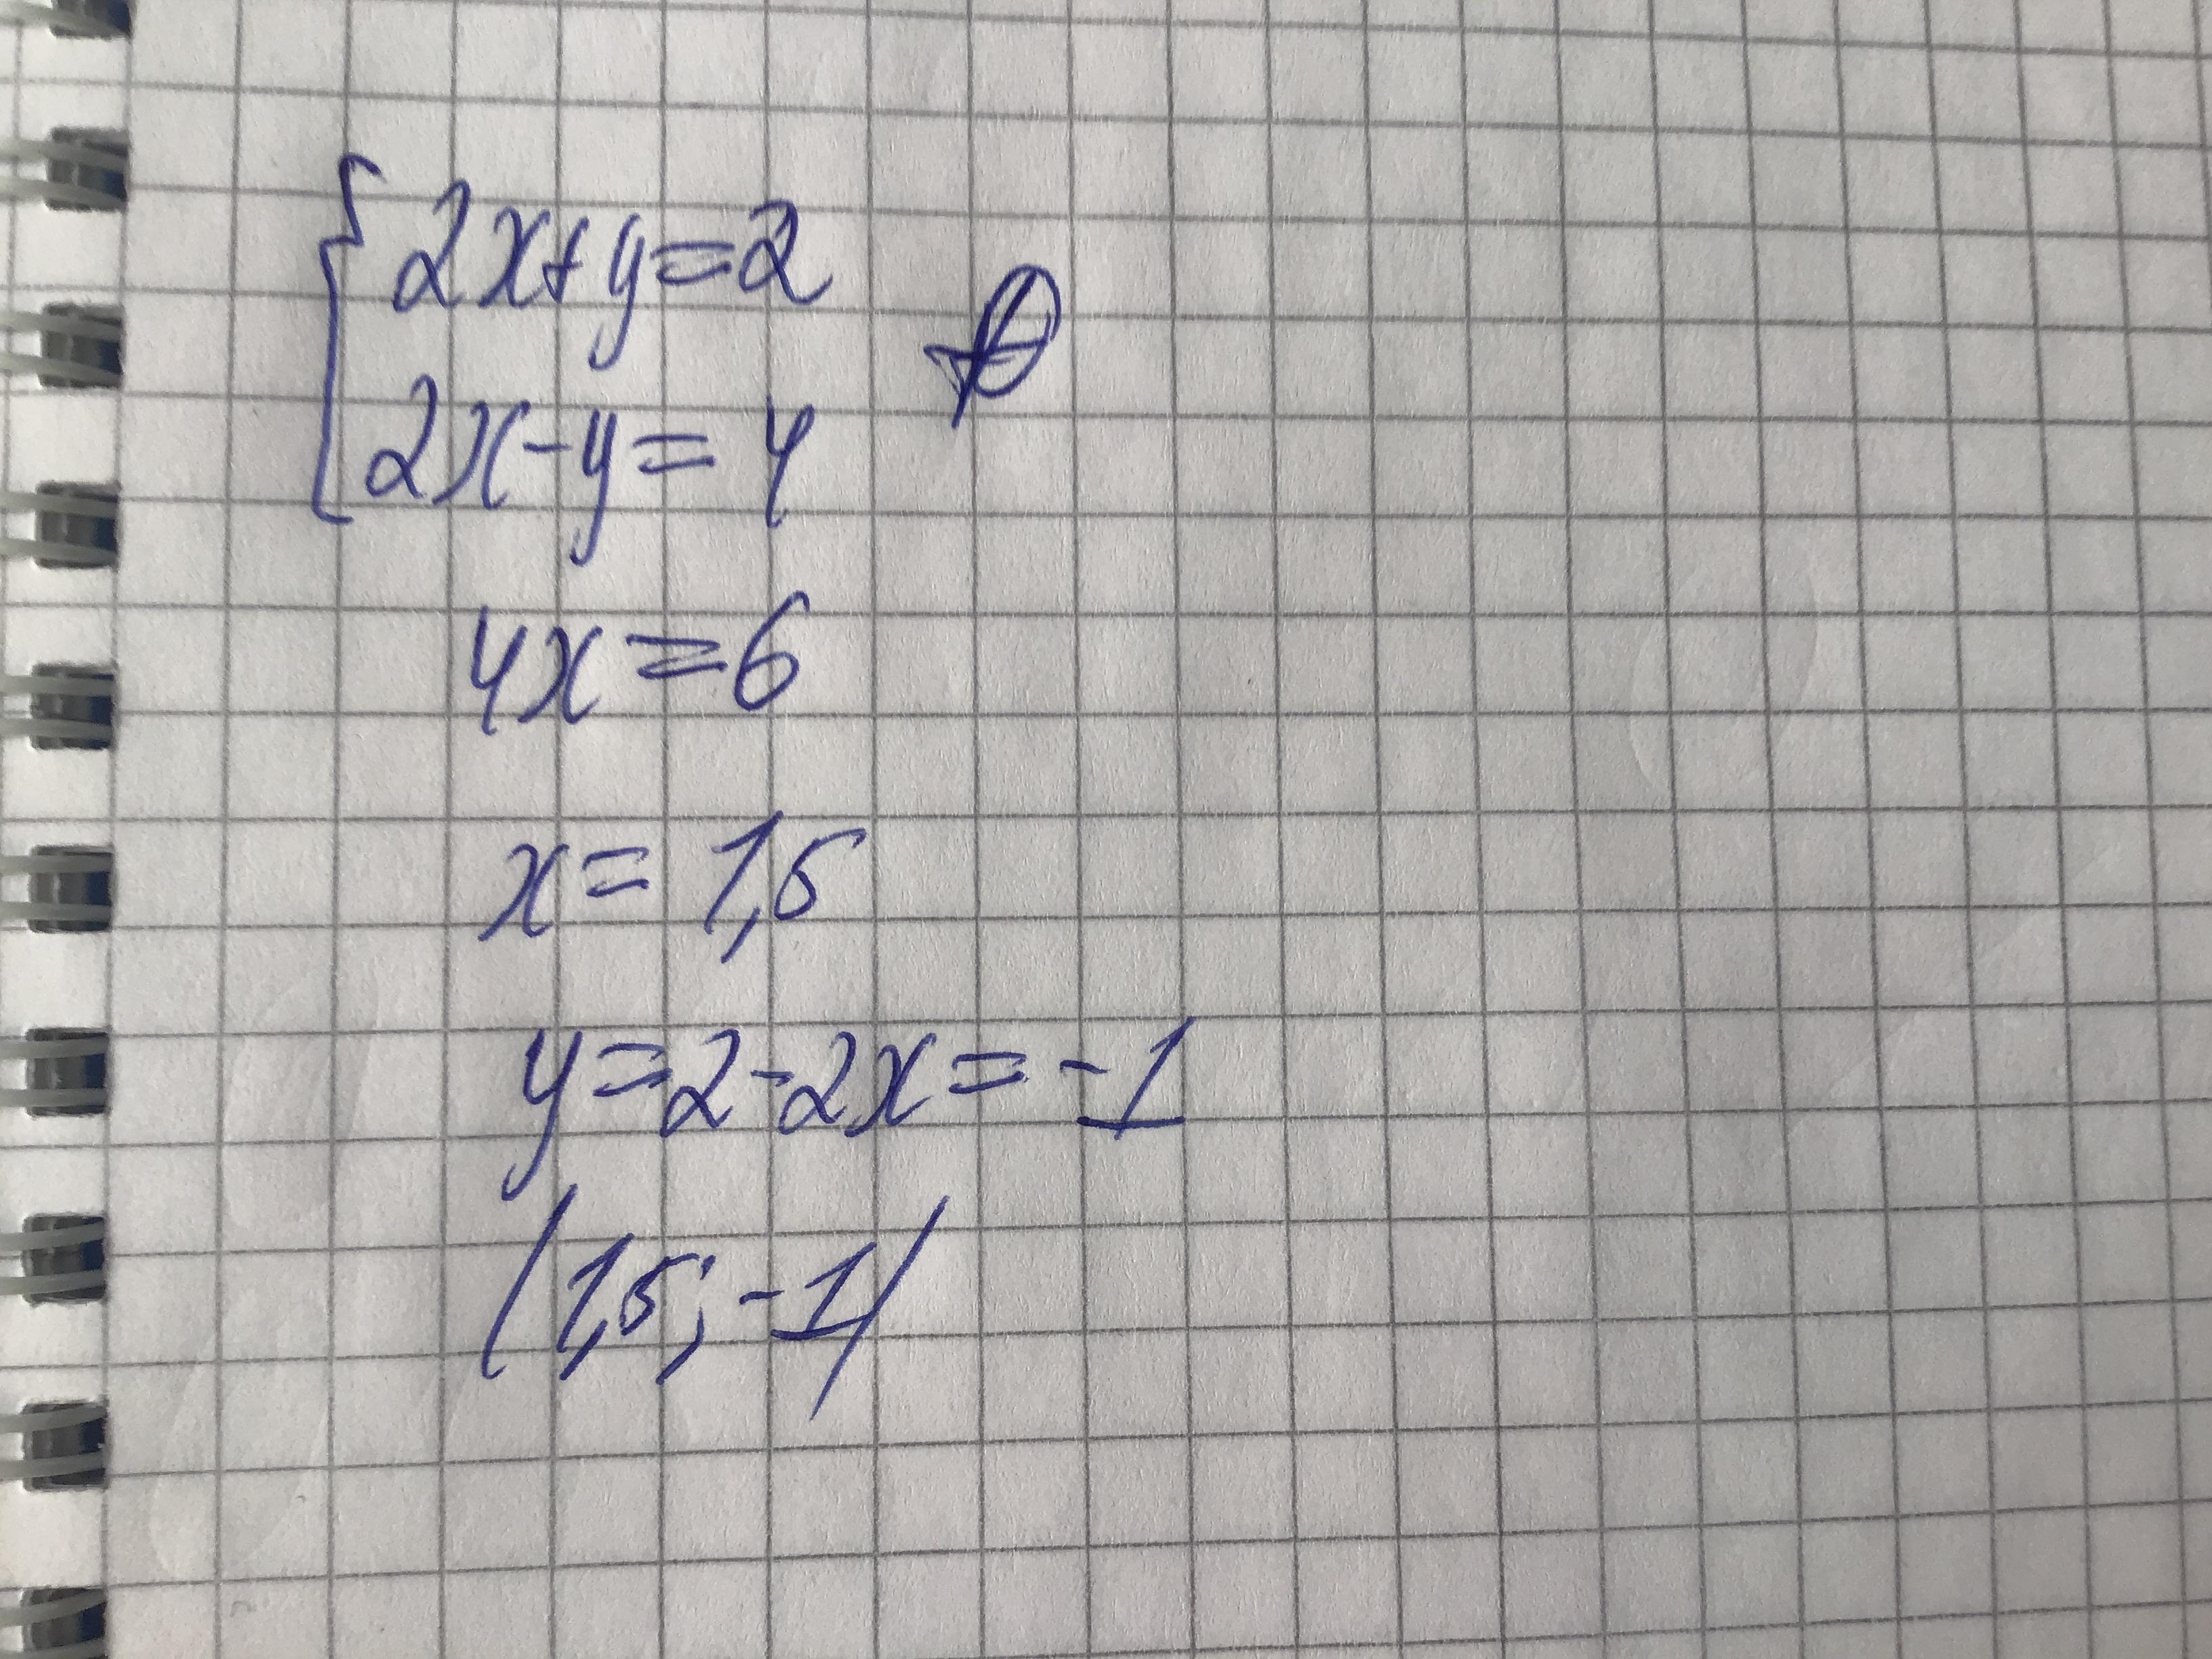 2x+y=2
2x-y=4
4x=6
x=1,5
y=2-2x=-1
(1,5;-1)